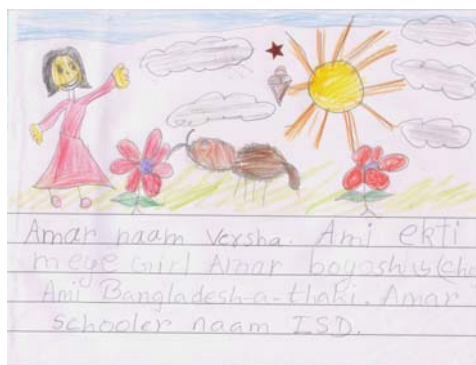 Amar naam Versha. Ami ekti
meye Girl Amar boyosh
Ami Bangladesh-a-thaki. Amar
schooler naam ISD.